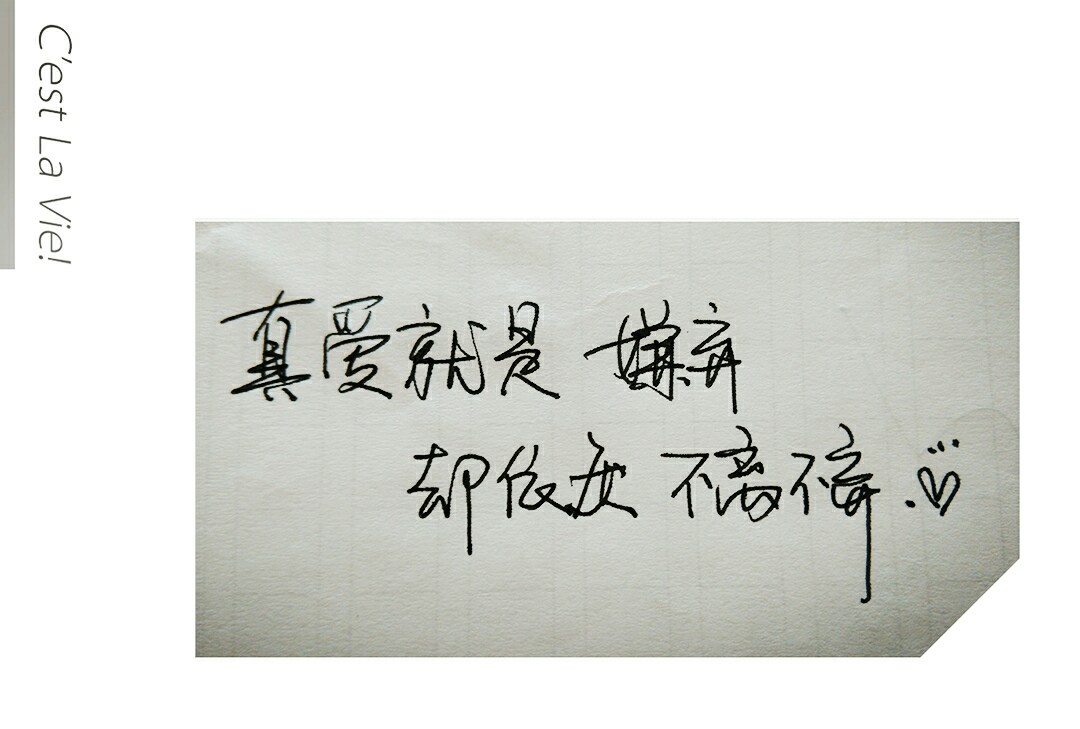 C'est La Vie!
真爱就是 嫌弃
却依旧 不离不弃.